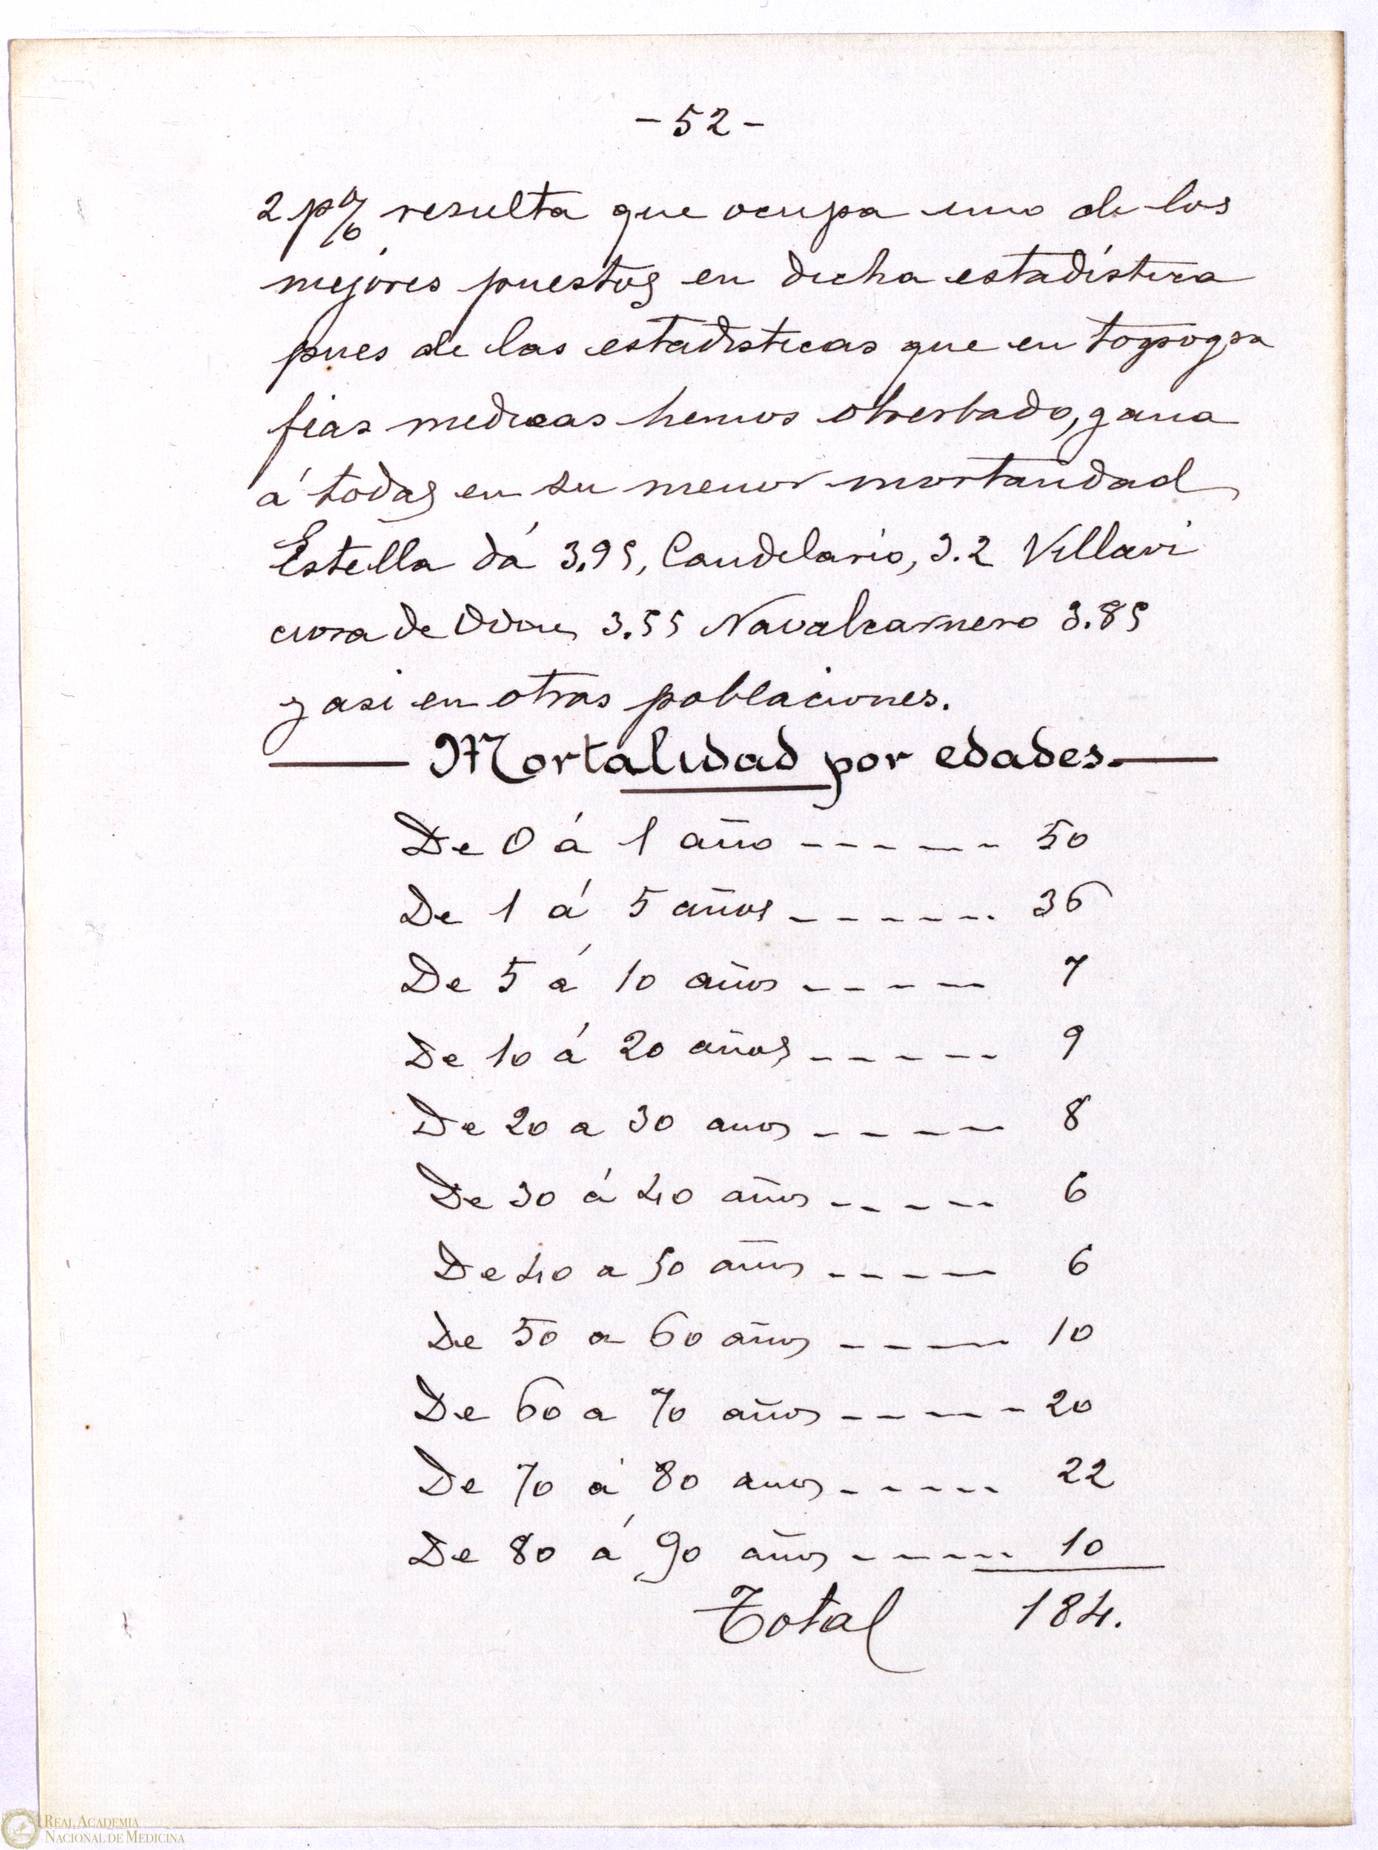 -52-
2 p% resulta que ocupa uno de los
mejores puestos en dicha estadística
pues de las estadisticas que en topogra
fias medicas hemos obserbado, gana
á todas en su menor mortandad
Estella dá 3.95, Candelario, 3.2 Villavi
ciosa de Odon 3.55 Navalcarnero 3.85
y asi en otras poblaciones.
Mortalidad por edades.
De 0 á 1 año ------ 50
De 1 á 5 años ------ 36
De 5 á 10 años ----- 7
De 10 á 20 años ----- 9
De 20 a 30 anos ----- 8
De 30 á 40 años ----- 6
De 40 a 50 años ----- 6
De 50 a 60 años ----- 10
De 60 a 70 años ------ 20
De 70 á 80 anos ----- 22
De 80 á 90 años ------ 10
Total 184.
REAL ACADEMIA
NACIONAL DE MEDICINA